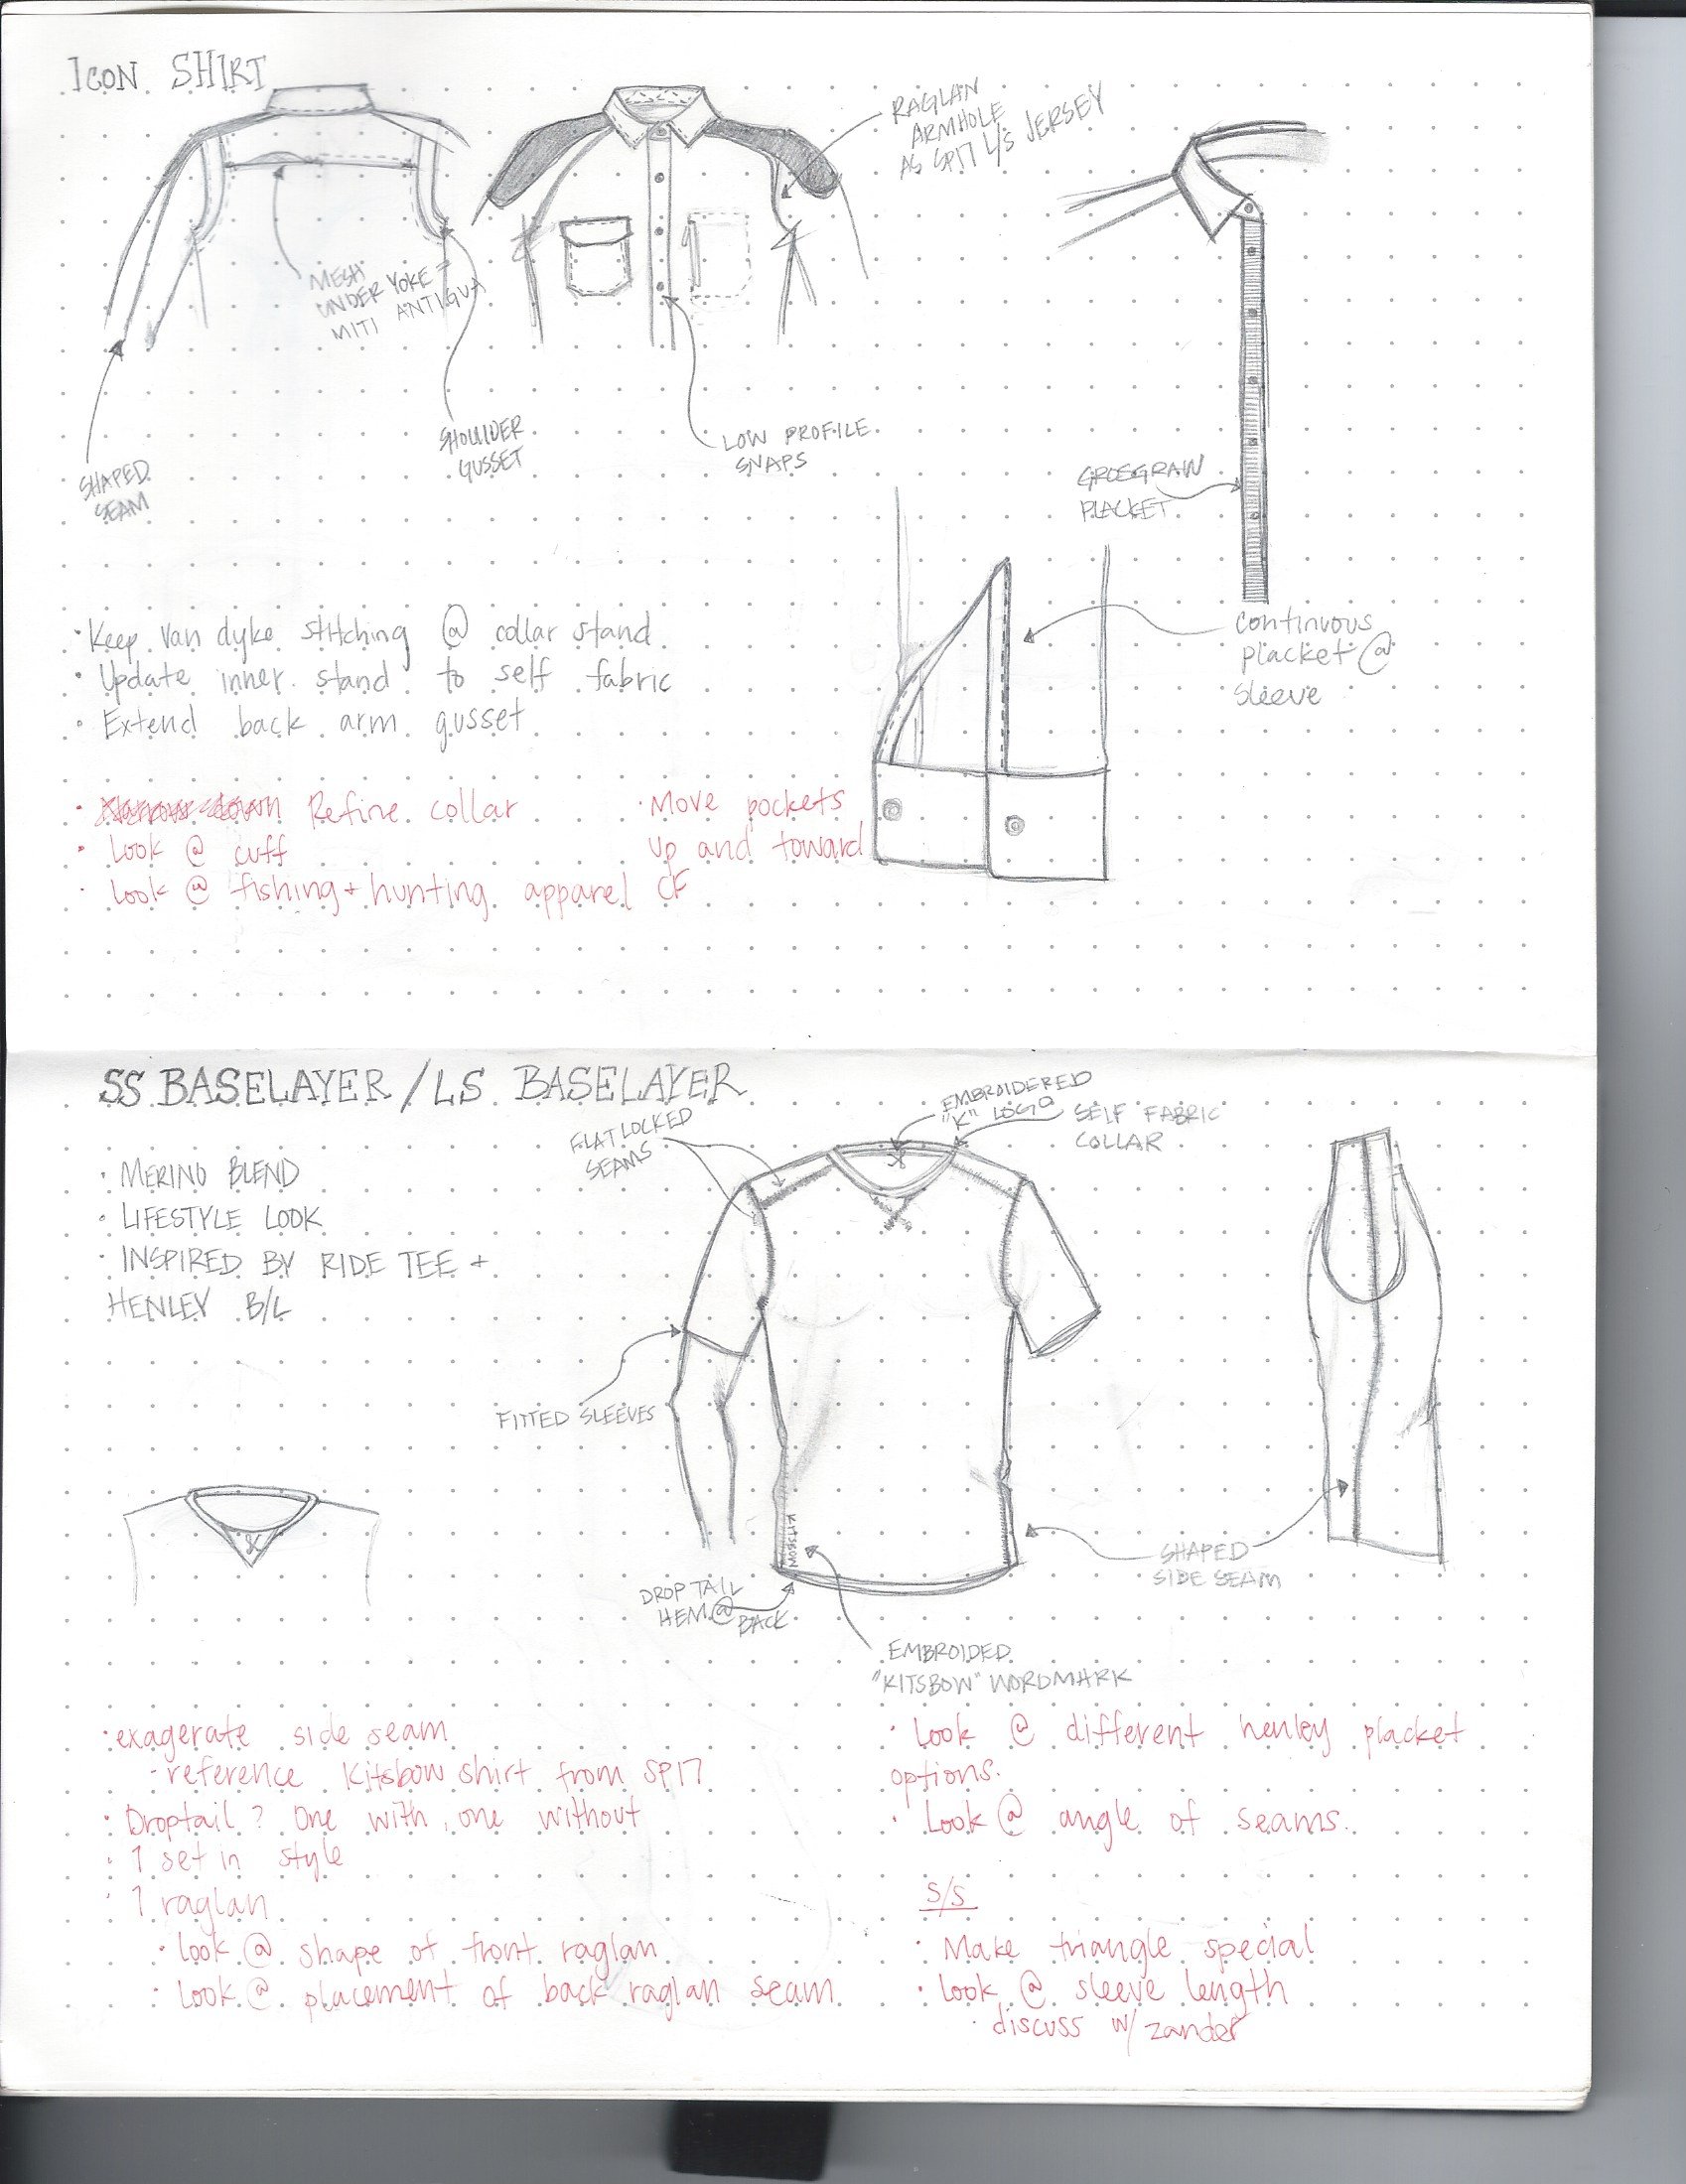 ICON SHIRT
RAGLAN
ARMHOLE
AS SP17 L/S JERSEY
MESH
UNDER YOKE =
MITI ANTIGUA
SHAPED
SEAM
SHOULDER
GUSSET
LOW PROFILE
SNAPS
GROEGRAIN
PLACKET
continuous
placket @
sleeve
• Keep van dyke stitching @ collar stand
• Update inner stand to self fabric
• Extend back arm gusset
• Refine collar
• Look @ cuff
• Look @ fishing + hunting apparel
• Move pockets
up and toward
CF
SS BASELAYER / LS BASELAYER
• MERINO BLEND
• LIFESTYLE LOOK
• INSPIRED BY RIDE TEE +
HENLEY B/L
FLATLOCKED
SEAMS
EMBROIDERED
"K" LOGO
SELF FABRIC
COLLAR
FITTED SLEEVES
KITSBOW
DROP TAIL
HEM @
BACK
SHAPED
SIDE SEAM
EMBROIDED
"KITSBOW" WORDMARK
• exagerate side seam
- reference Kitsbow shirt from SP17
• Droptail? One with, one without
• 1 set in style
• 1 raglan
• Look @ shape of front raglan
• Look @ placement of back raglan seam
• Look @ different henley placket
options.
• Look @ angle of seams.
S/S
• Make triangle special
• Look @ sleeve length
• discuss w/ zander